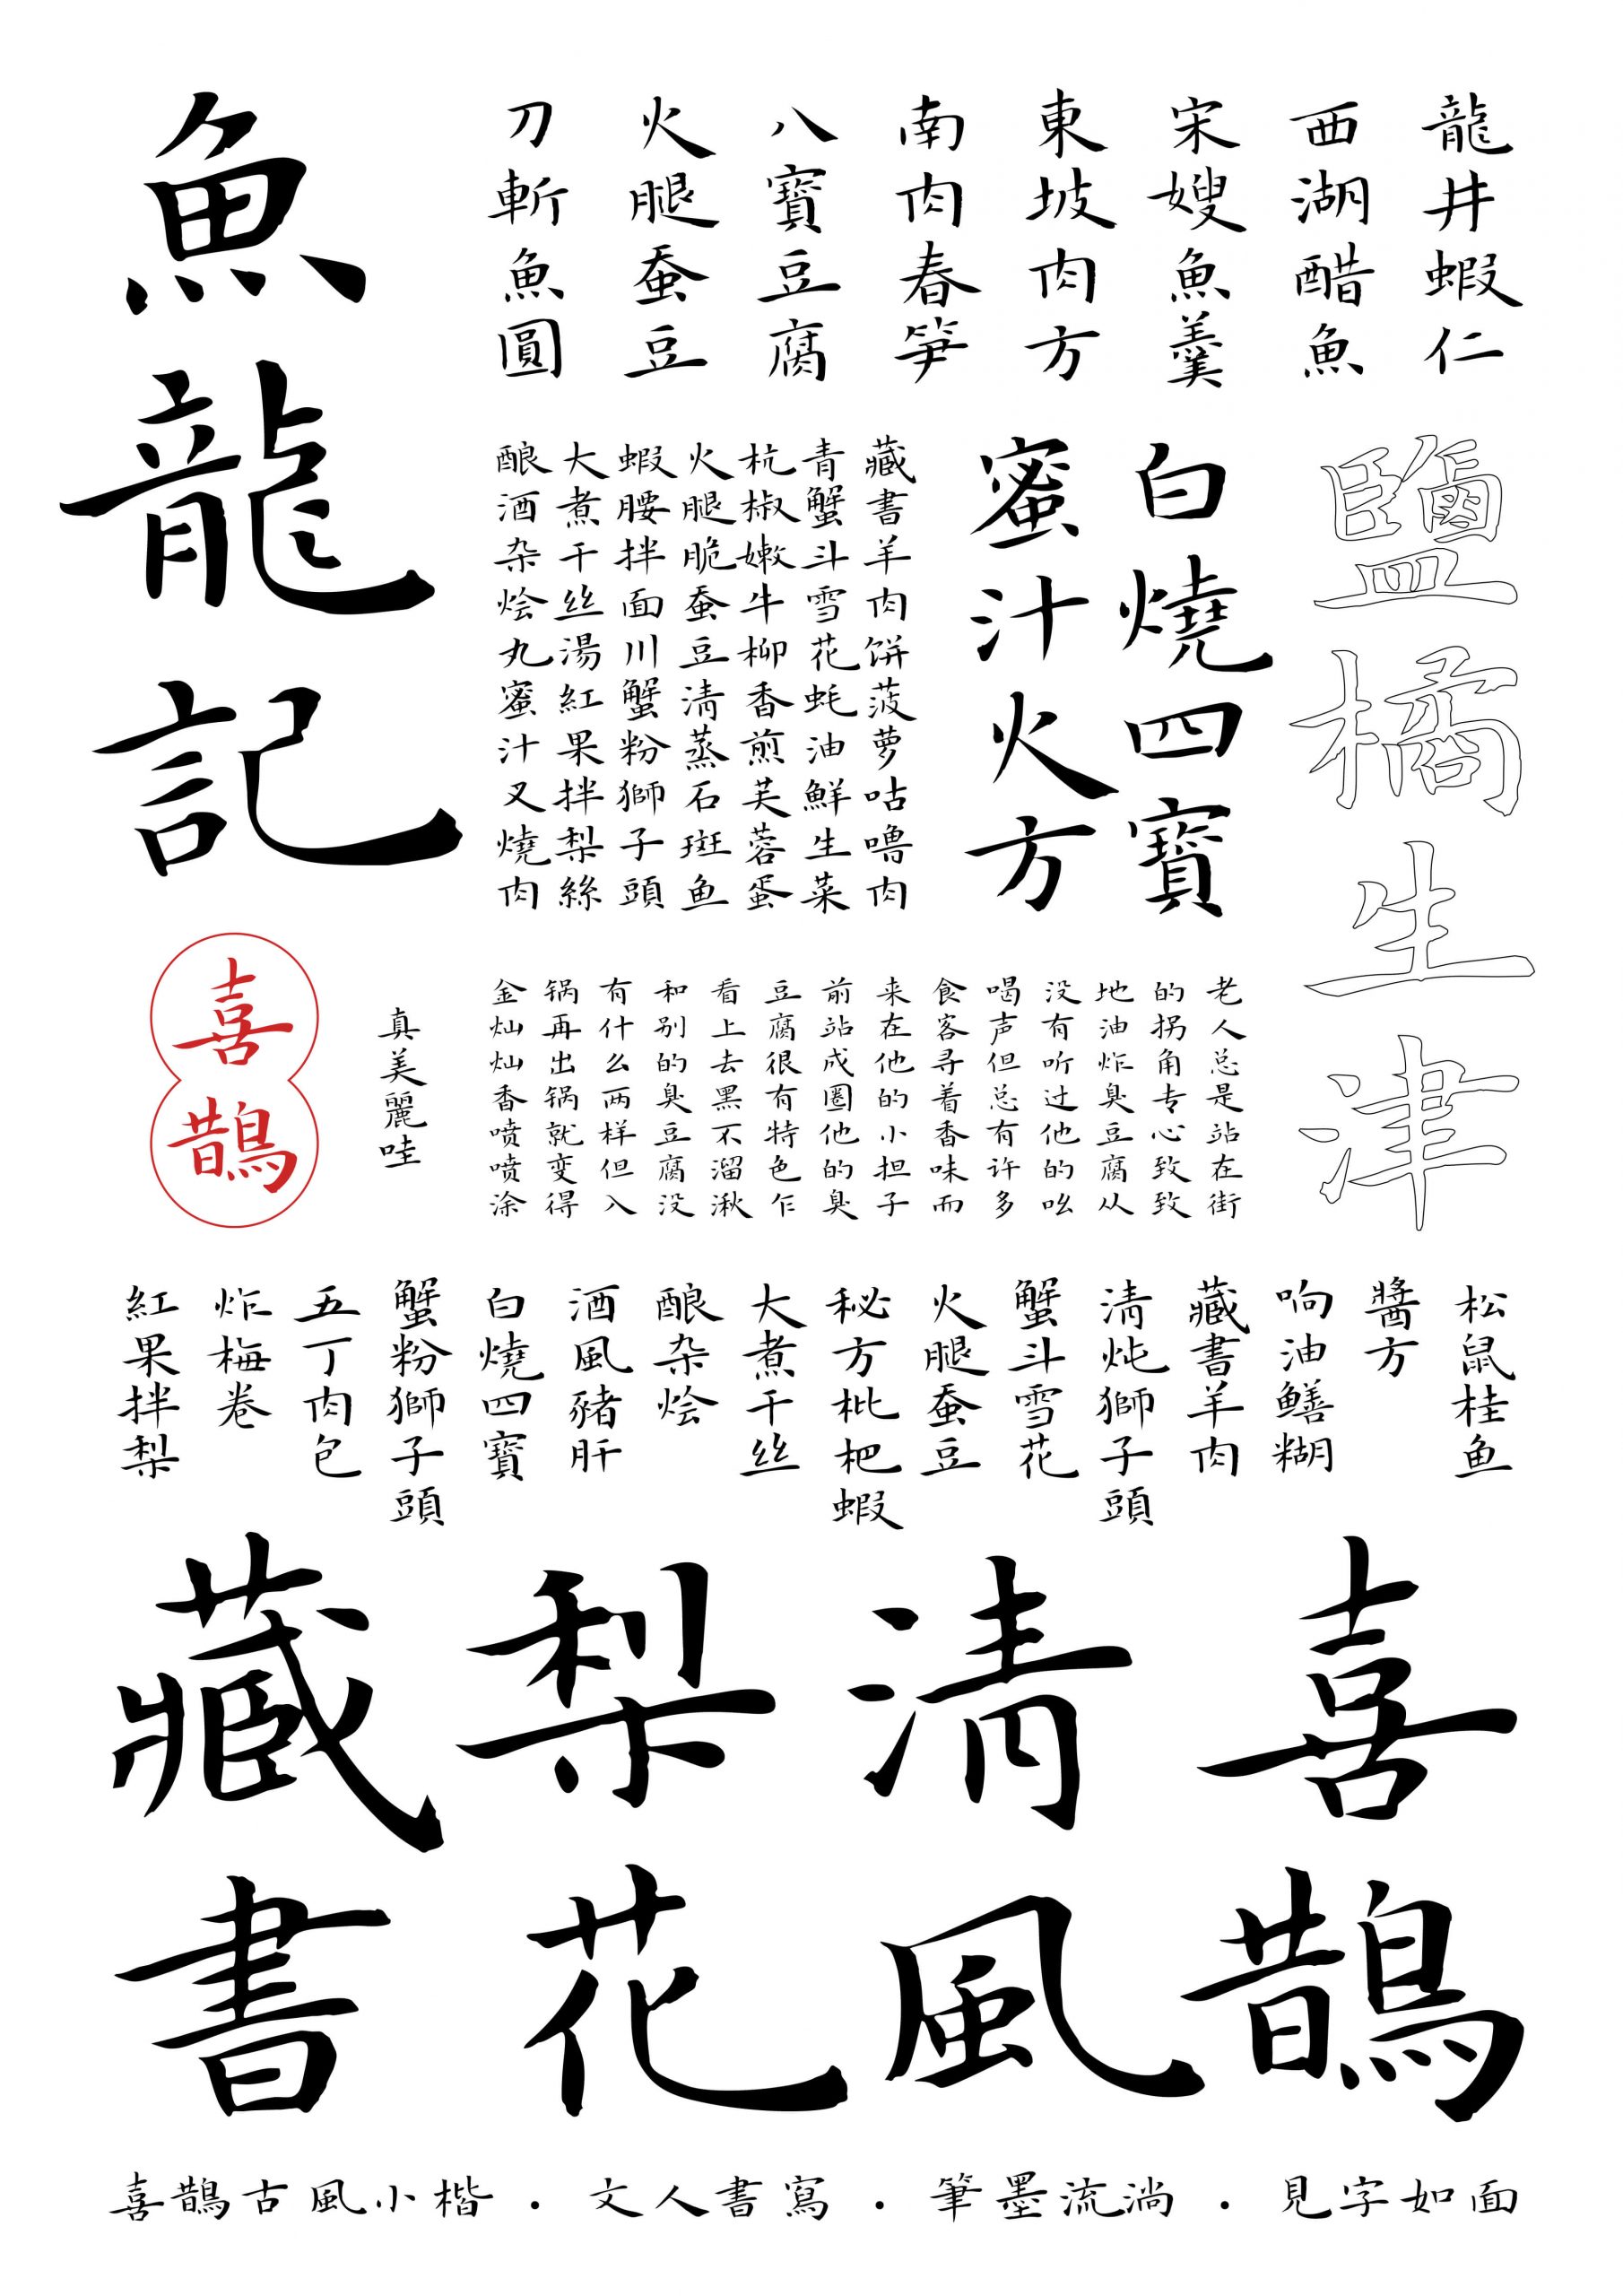 龍井蝦仁
西湖醋魚
宋嫂魚羹
東坡肉方
南肉春笋
八寶豆腐
火腿蚕豆
刀斬魚圓
魚龍記
鹽橘生津
白燒四寶
蜜汁火方
藏書羊肉饼菠萝咕噜肉
青蟹斗雪花蚝油鮮生菜
杭椒嫩牛柳香煎芙蓉蛋
火腿脆蚕豆清蒸石斑鱼
蝦腰拌面川蟹粉獅子頭
大煮干丝湯紅果拌梨絲
酿酒杂烩丸蜜汁叉燒肉
老人总是站在街
的拐角专心致致
地油炸臭豆腐从
没有听过他的吆
喝声但总有许多
食客寻着香味而
来在他的小担子
前站成圈他的臭
豆腐很有特色乍
看上去黑不溜湫
和别的臭豆腐没
有什么两样但入
锅再出锅就变得
金灿灿香喷喷涂
真美麗哇
喜鵲
松鼠桂鱼
醬方
响油鳝糊
藏書羊肉
清炖獅子頭
蟹斗雪花
火腿蚕豆
秘方枇杷蝦
大煮干丝
酿杂烩
酒風豬肝
白燒四寶
蟹粉獅子頭
五丁肉包
炸梅卷
紅果拌梨
喜鵲
清風
梨花
藏書
喜鵲古風小楷 · 文人書寫 · 筆墨流淌 · 見字如面